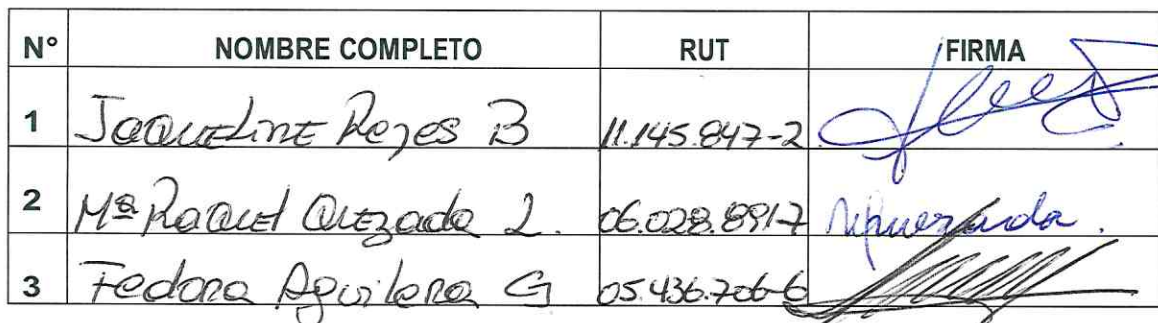 N° NOMBRE COMPLETO RUT FIRMA
1 Jaqueline Reyes B 11.145.847-2
2 Mª Raquel Quezada L. 06.028.891-7 Mquezada.
3 Fedora Aguilera G 05.436.706-6